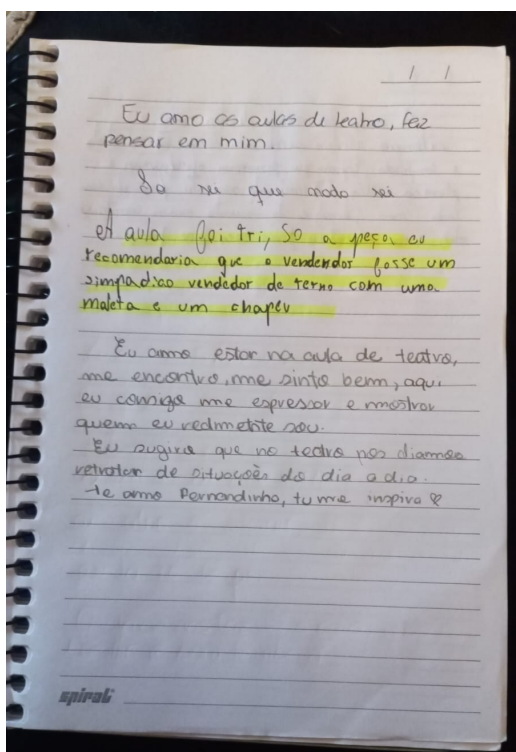 / /
Eu amo as aulas de teatro, fez
pensar em mim.
So sei que nada sei
A aula foi tri, so a peça eu
recomendaria que o vendendor fosse um
simpadico vendedor de terno com uma
maleta e um chapeu
Eu amo estar na aula de teatro,
me encontro, me sinto bem, aqui
eu consigo me expressar e mostrar
quem eu realmente sou.
Eu sugiro que no teatro nos
retratar de situações do dia a dia.
te amo Fernandinho, tu me inspira ♡
spiral